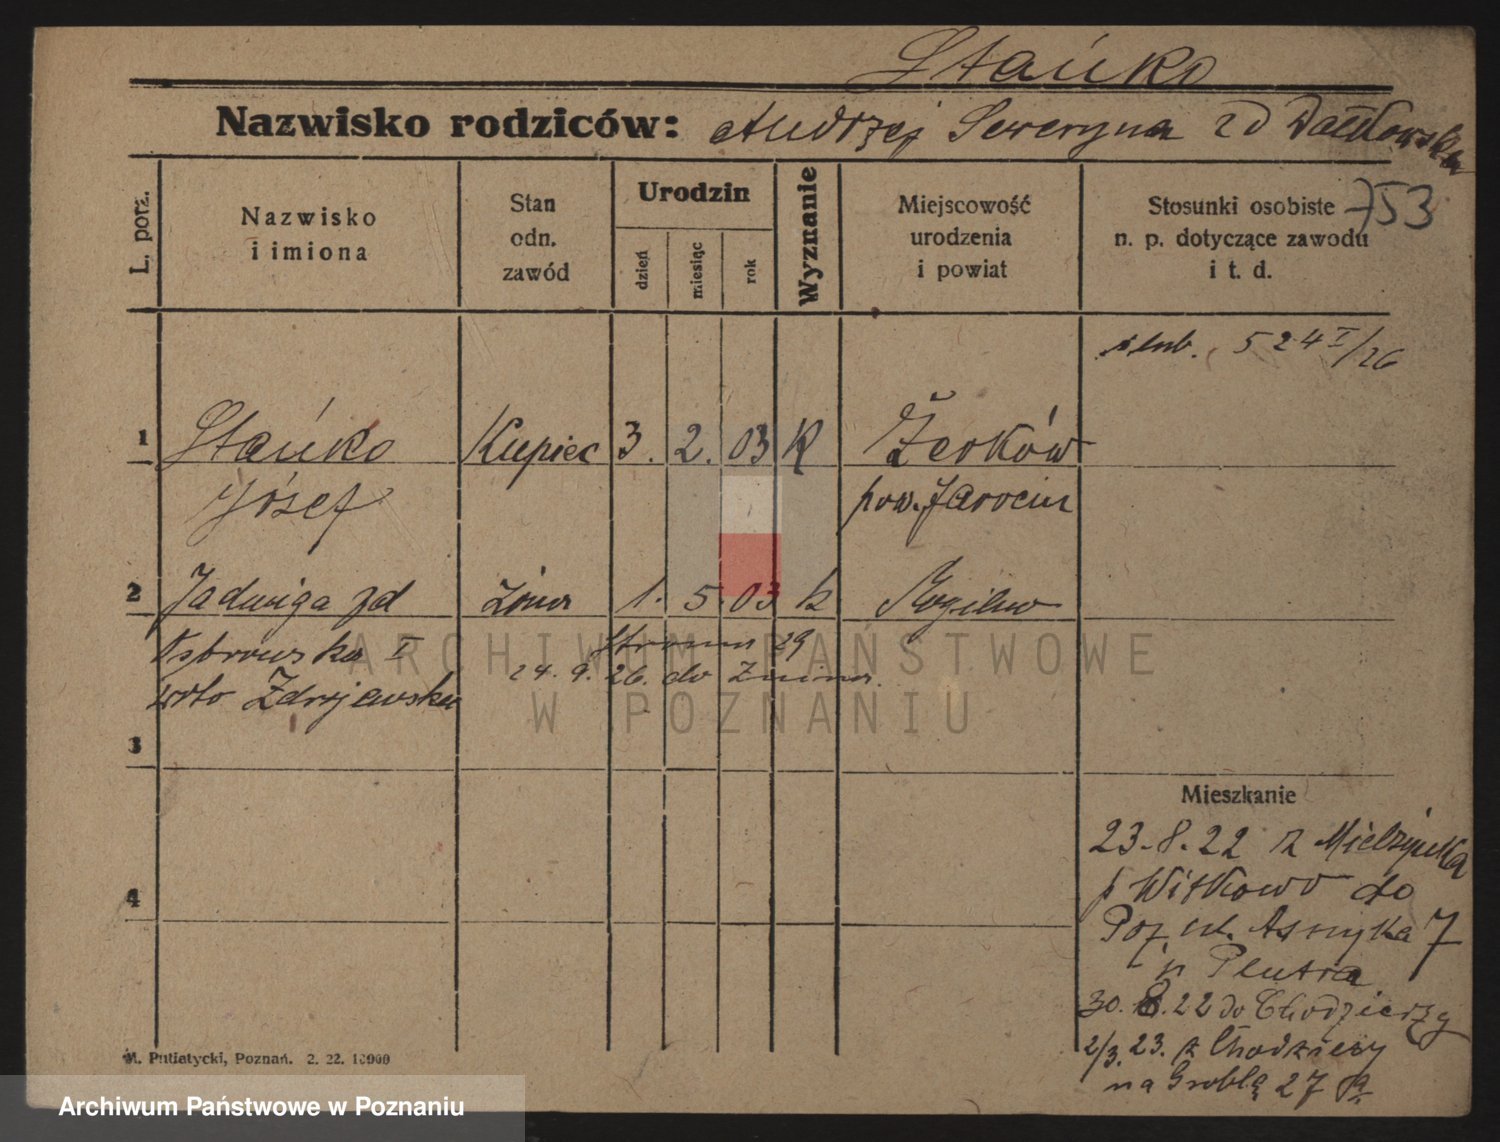 Stańko
Nazwisko rodziców: Andrzej Seweryna zd
753
L. porz.
Nazwisko
i imiona
Stan
odn.
zawód
Urodzin
dzień
miesiąc
rok
Wyznanie
Miejscowość
urodzenia
i powiat
Stosunki osobiste
n. p. dotyczące zawodu
i t. d.
ślub. 524 I/26
1 Stańko Kupiec 3. 2. 03 K Żerków
Józef pow. Jarocin
2 Jadwiga zd żona 1. 5. 03 k Mogilno
II 29
voto Zdrojewska 24. 9. 26. do Żnina.
3
4
Mieszkanie
23.8.22 z Mielżynka
p Witkowo do
Poz. ul. Asnyka 7
p Plutra
30. 8. 22 do Chodzieży
2/3. 23. z Chodzieży
na Groblą 27
M. Putiatycki, Poznań. 2. 22. 10000
ARCHIWUM PAŃSTWOWE
W POZNANIU
Archiwum Państwowe w Poznaniu